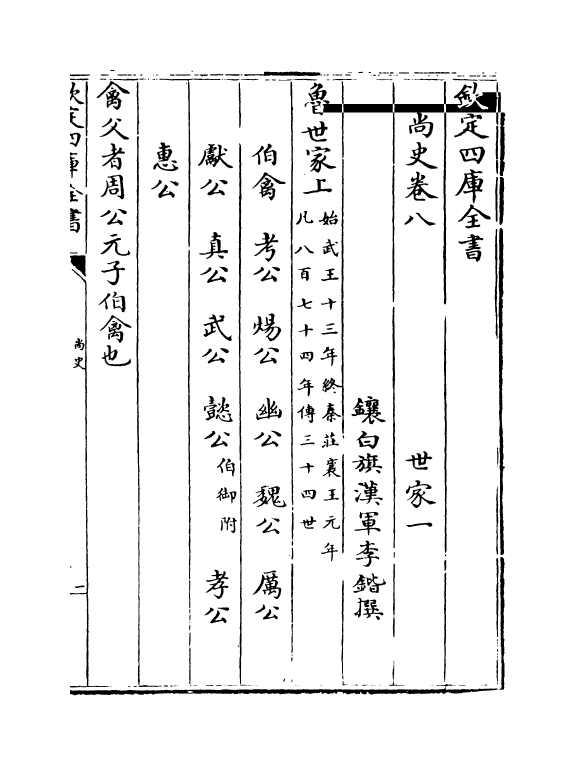 欽定四庫全書
尚史卷八 世家一
鑲白旗漢軍李鍇撰
魯世家上 始武王十三年終秦莊襄王元年
凡八百七十四年傳三十四世
伯禽 考公 煬公 幽公 魏公 厲公
獻公 真公 武公 懿公 伯御附 孝公
惠公
禽父者周公元子伯禽也
欽定四庫全書
尚史